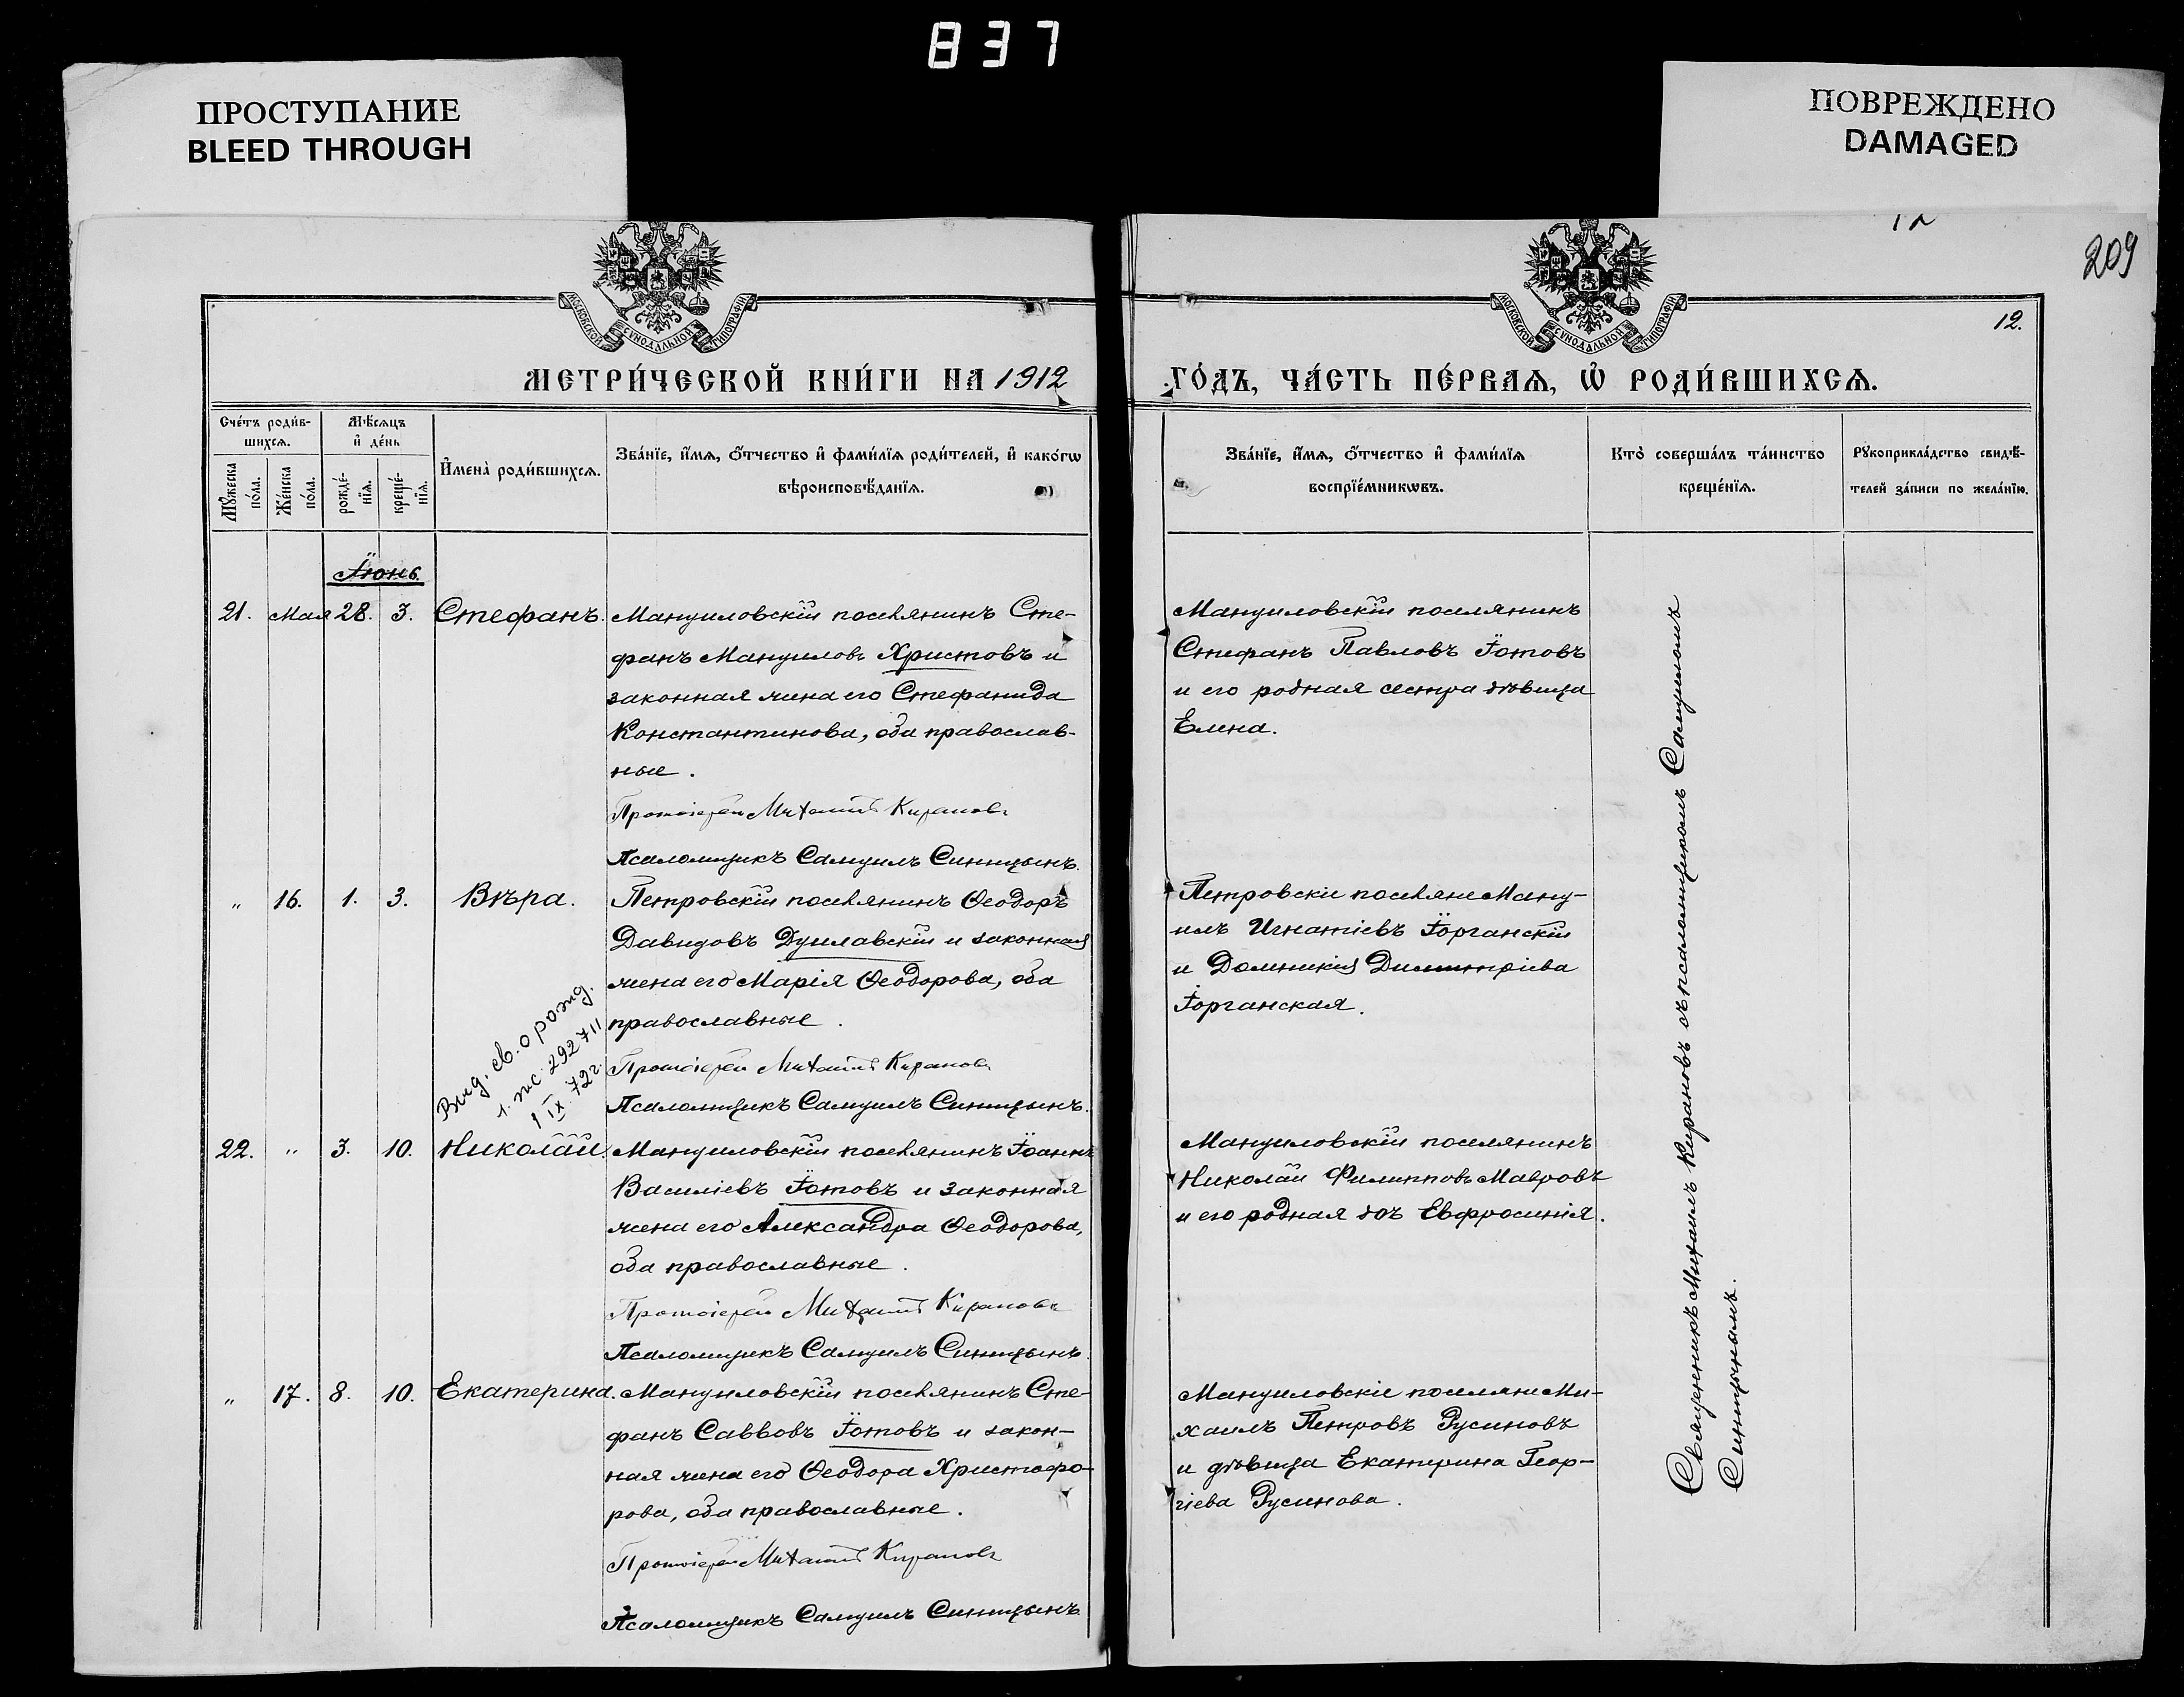 837
ПРОСТУПАНИЕ
BLEED THROUGH
ПОВРЕЖДЕНО
DAMAGED
209
12.
МОСКОВСКОЙ СѴНОДАЛЬНОЙ ТИПОГРАФІИ
МОСКОВСКОЙ СѴНОДАЛЬНОЙ ТИПОГРАФІИ
МЕТРИ́ЧЕСКОЙ КНИ́ГИ НА 1912
ГО́ДЪ, ЧА́СТЬ ПЕ́РВАѦ, Ѡ҆ РОДИ́ВШИХСѦ.
Сче́тъ роди́в-
шихсѧ.
Мѣ́сѧцъ
и҆ де́нь
Мꙋ́жеска
по́ла.
Же́нска
по́ла.
рожде́-
нїѧ.
креще́-
нїѧ.
И҆мена̀ роди́вшихсѧ.
Зва́нїе, и҆́мѧ, ѻ҆́тчество и҆ фами́лїѧ роди́телей, и҆ како́гѡ
вѣроисповѣ́данїѧ.
Зва́нїе, и҆́мѧ, ѻ҆́тчество и҆ фами́лїѧ
воспрїе́мникѡвъ.
Кто̀ соверша́лъ та́инство
креще́нїѧ.
Рꙋкоприкла́дство свидѣ́-
телей за́писи по жела́нїю.
Іюнь
21. Мая 28. 3. Стефанъ. Мануиловскій поселянинъ Сте-
фанъ Мануиловъ Христовъ и
законная жена его Стефанида
Константинова, оба православ-
ные.
Протоіерей Михаилъ Кирановъ
Псаломщикъ Самуилъ Синицынъ.
Мануиловскій поселянинъ
Стефанъ Павловъ Іотовъ
и его родная сестра дѣвица
Елена.
„ 16. 1. 3. Вѣра. Петровскій поселянинъ Ѳеодоръ
Давидовъ Дуилавскій и законная
жена его Марія Ѳеодорова, оба
православные.
Протоіерей Михаилъ Кирановъ
Псаломщикъ Самуилъ Синицынъ.
Петровскіе поселяне Ману-
илъ Игнатіевъ Іорганскій
и Домникія Димитріева
Іорганская.
Выд. св. о рожд.
1. жс. 292711
1 IX. 72 г.
22. „ 3. 10. Николай. Мануиловскій поселянинъ Іоаннъ
Василіевъ Іотовъ и законная
жена его Александра Ѳеодорова,
оба православные.
Протоіерей Михаилъ Кирановъ
Псаломщикъ Самуилъ Синицынъ.
Мануиловскій поселянинъ
Николай Филипповъ Мавровъ
и его родная дочь Евфросинія.
„ 17. 8. 10. Екатерина. Мануиловскій поселянинъ Сте-
фанъ Саввовъ Іотовъ и закон-
ная жена его Ѳеодора Христофо-
рова, оба православные.
Протоіерей Михаилъ Кирановъ
Псаломщикъ Самуилъ Синицынъ
Мануиловскіе поселяне Ми-
хаилъ Петровъ Русиновъ
и дѣвица Екатерина Геор-
гіева Русинова.
Священникъ Михаилъ Кирановъ съ псаломщикомъ Самуиломъ
Синицынымъ.